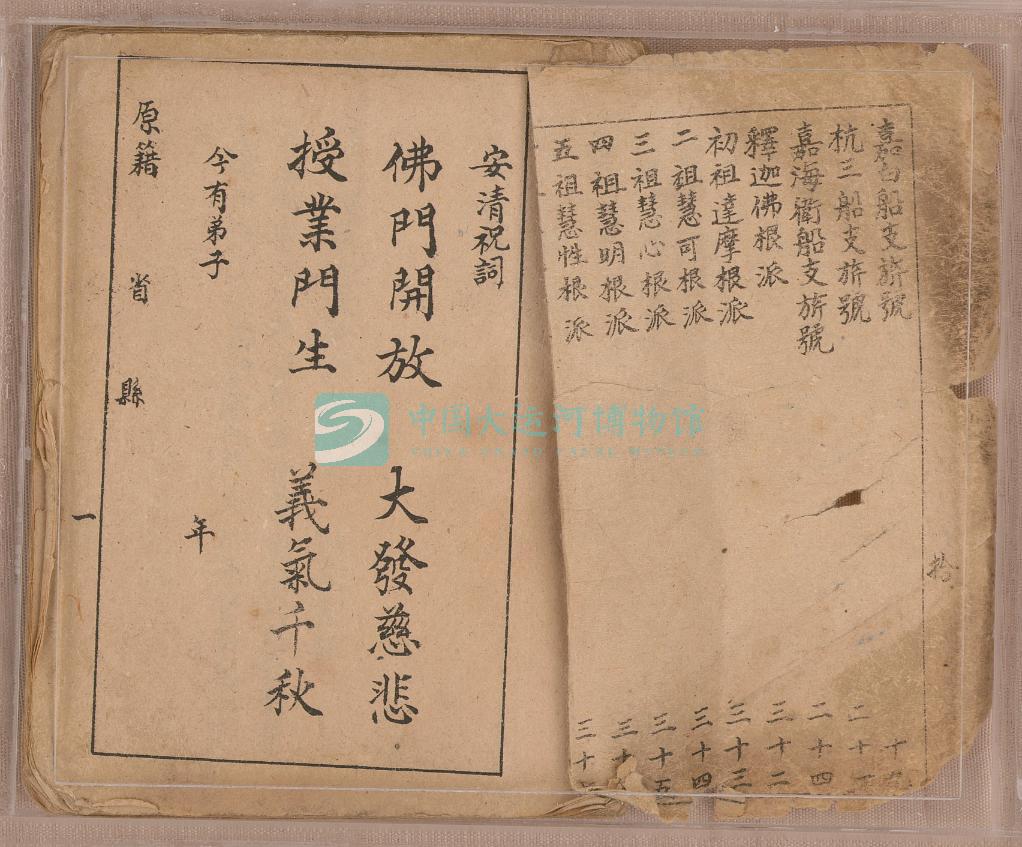 嘉白船支旂號 十九
杭三船支旂號 二十一
嘉海衛船支旂號 二十四
釋迦佛根派 三十二
初祖達摩根派 三十三
二祖慧可根派 三十四
三祖慧心根派 三十五
四祖慧明根派 三十
五祖慧性根派 三十
拾
安清祝詞
佛門開放 大發慈悲
授業門生 義氣千秋
今有弟子 年
原籍 省 縣
一
中国大运河博物馆
CHINA GRAND CANAL MUSEUM